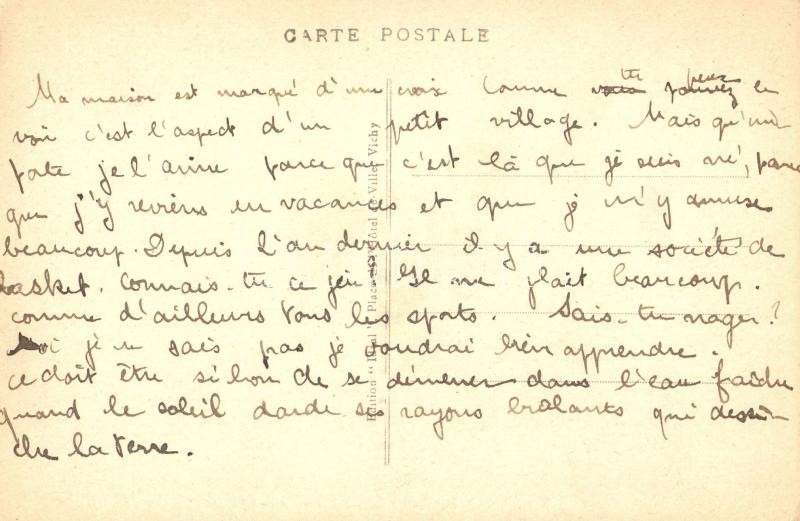 CARTE POSTALE
Ma maison est marqué d'une croix comme vous tu pouvez peux le
voir c'est l'aspect d'un petit village. Mais qu'im
porte je l'aime parce que c'est là que je suis né, parce
que j'y reviens en vacances et que je m'y amuse
beaucoup. Depuis l'an dernier il y a une société de
basket. Connais-tu ce jeu Il me plait beaucoup.
comme d'ailleurs tous les sports. Sais-tu nager?
Moi je ne sais pas je voudrai bien apprendre.
ce doit être si bon de se démener dans l'eau fraîche
quand le soleil darde ses rayons brûlants qui dessè
che la terre.
Place de l'Hôtel de Ville, Vichy